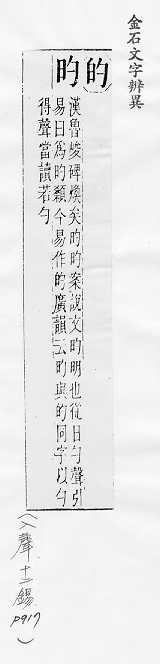 金石文字辨異
的
旳
漢魯峻碑煥矣旳旳案說文旳明也從日勺聲引
易曰爲旳顙今易作的廣韻云旳與的同字以勺
得聲當讀若勺
(入聲十二錫P917)